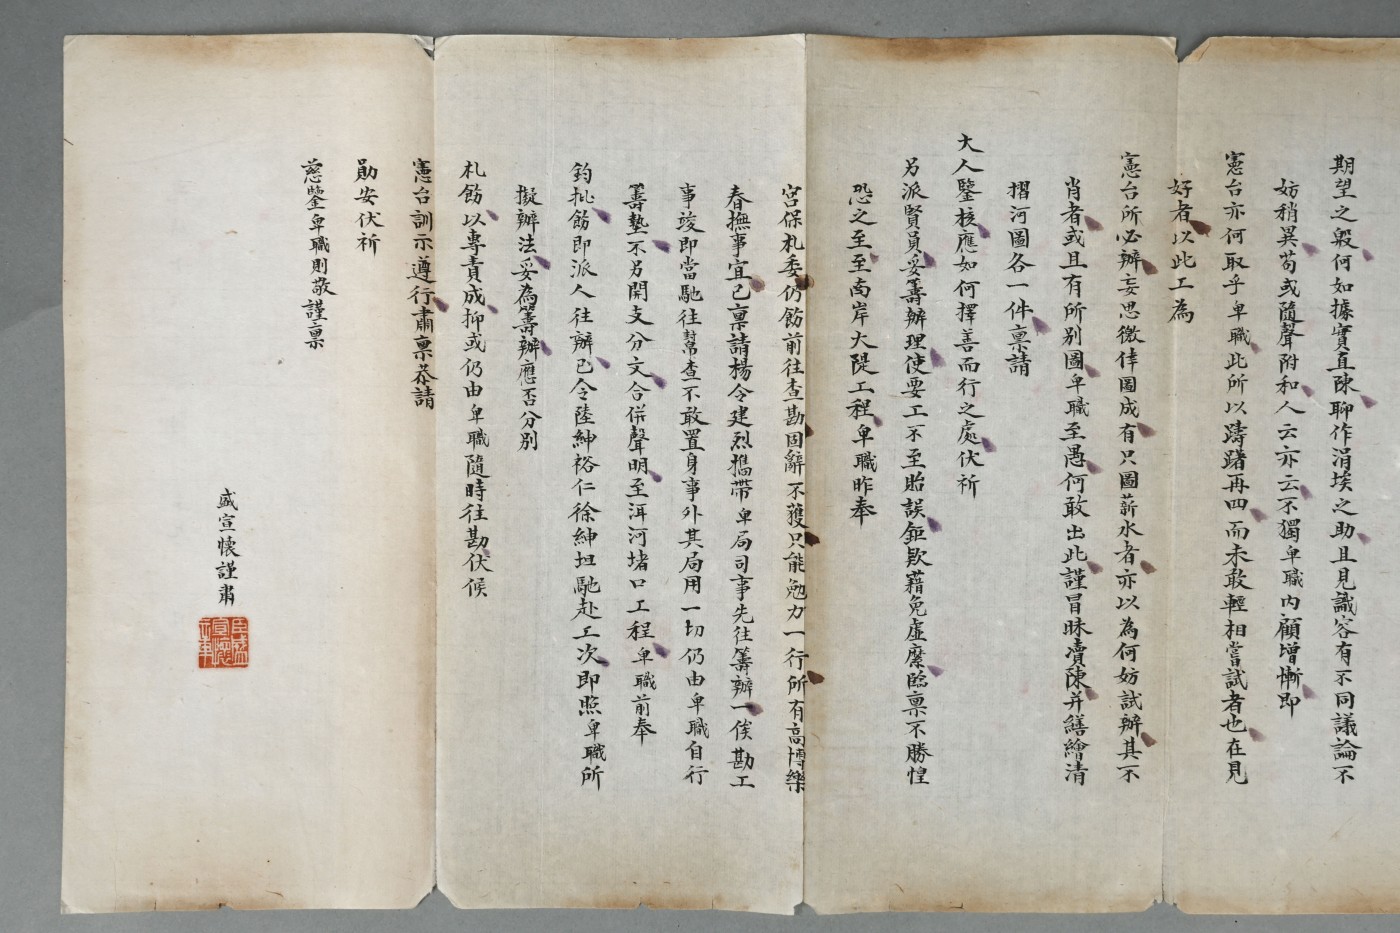 期望之殷何如據實直陳聊作涓埃之助且見識容有不同議論不
妨稍異苟或隨聲附和人云亦云不獨卑職內顧增慚即
憲台亦何取乎卑職此所以躊躇再四而未敢輕相嘗試者也在見
好者以此工為
憲台所必辦妄思徼倖圖成有只圖薪水者亦以為何妨試辦其不
肖者或且有所別圖卑職至愚何敢出此謹冒昧瀆陳并繕繪清
摺河圖各一件稟請
大人鑒核應如何擇善而行之處伏祈
另派賢員妥籌辦理使要工不至貽誤鉅款藉免虛糜臨稟不勝惶
恐之至至南岸大隄工程卑職昨奉
宮保札委仍飭前往查勘固辭不獲只能勉力一行所有高博樂
春撫事宜已稟請楊令建烈攜帶卑局司事先往籌辦一俟勘工
事竣即當馳往幫查不敢置身事外其局用一切仍由卑職自行
籌墊不另開支分文合併聲明至洱河堵口工程卑職前奉
鈞批飭即派人往辦已令陸紳裕仁徐紳坦馳赴工次即照卑職所
擬辦法妥為籌辦應否分別
札飭以專責成抑或仍由卑職隨時往勘伏候
憲台訓示遵行肅稟恭請
勛安伏祈
慈鑒卑職則敬謹稟
盛宣懷謹肅
臣盛宣懷章